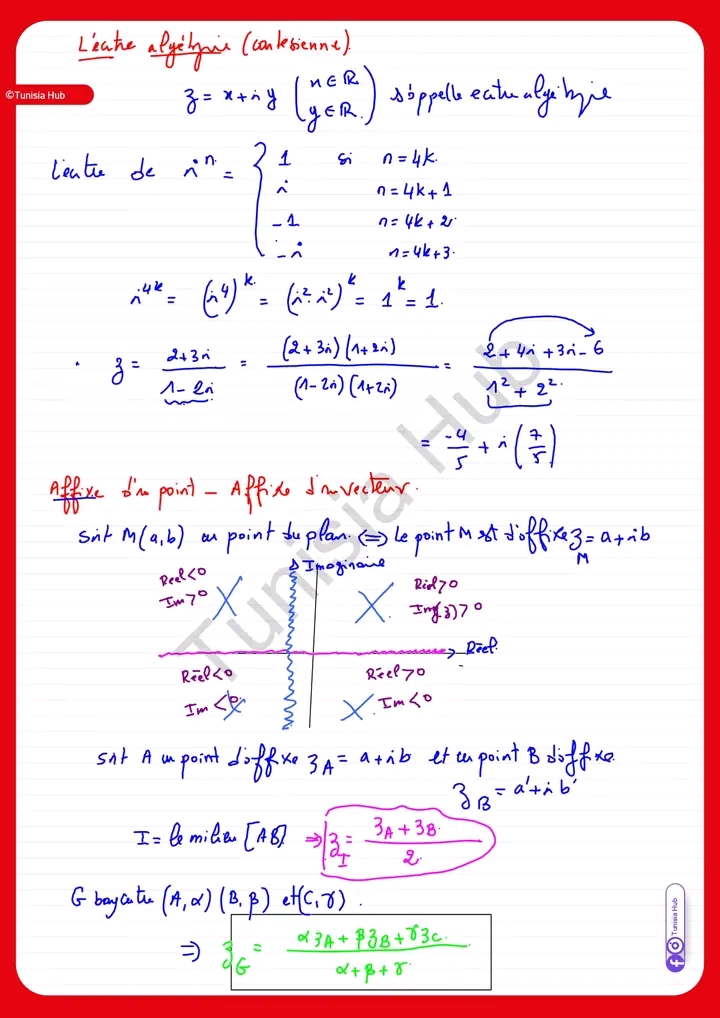 L'écriture algébrique (cartésienne).
©Tunisia Hub
z = x + iy (x ∈ ℝ y ∈ ℝ.) s'appelle écriture algébrique
L'écriture de iⁿ = { 1 si n = 4k.
i n = 4k + 1
-1 n = 4k + 2
-i n = 4k + 3.
i⁴ᵏ = (i⁴)ᵏ = (i².i²)ᵏ = 1ᵏ = 1.
. z = (2+3i)/(1-2i) = (2+3i)(1+2i)/(1-2i)(1+2i) = (2+4i+3i-6)/(1²+2²)
= -4/5 + i(7/5)
Affixe d'un point - Affixe d'un vecteur.
Soit M(a,b) un point du plan. ⟺ Le point M est d'affixe z_M = a+ib
Imaginaire
Réel<0 Réel>0
Im>0 Im(z)>0
Réel.
Réel<0 Réel>0
Im<0 Im<0
Soit A un point d'affixe z_A = a+ib et un point B d'affixe
z_B = a'+ib'
I = le milieu [AB] ⇒ z_I = (z_A + z_B)/2
G barycentre (A,α) (B,β) et (C,γ).
⇒ z_G = (αz_A + βz_B + γz_C)/(α+β+γ)
Tunisia Hub
Tunisia Hub